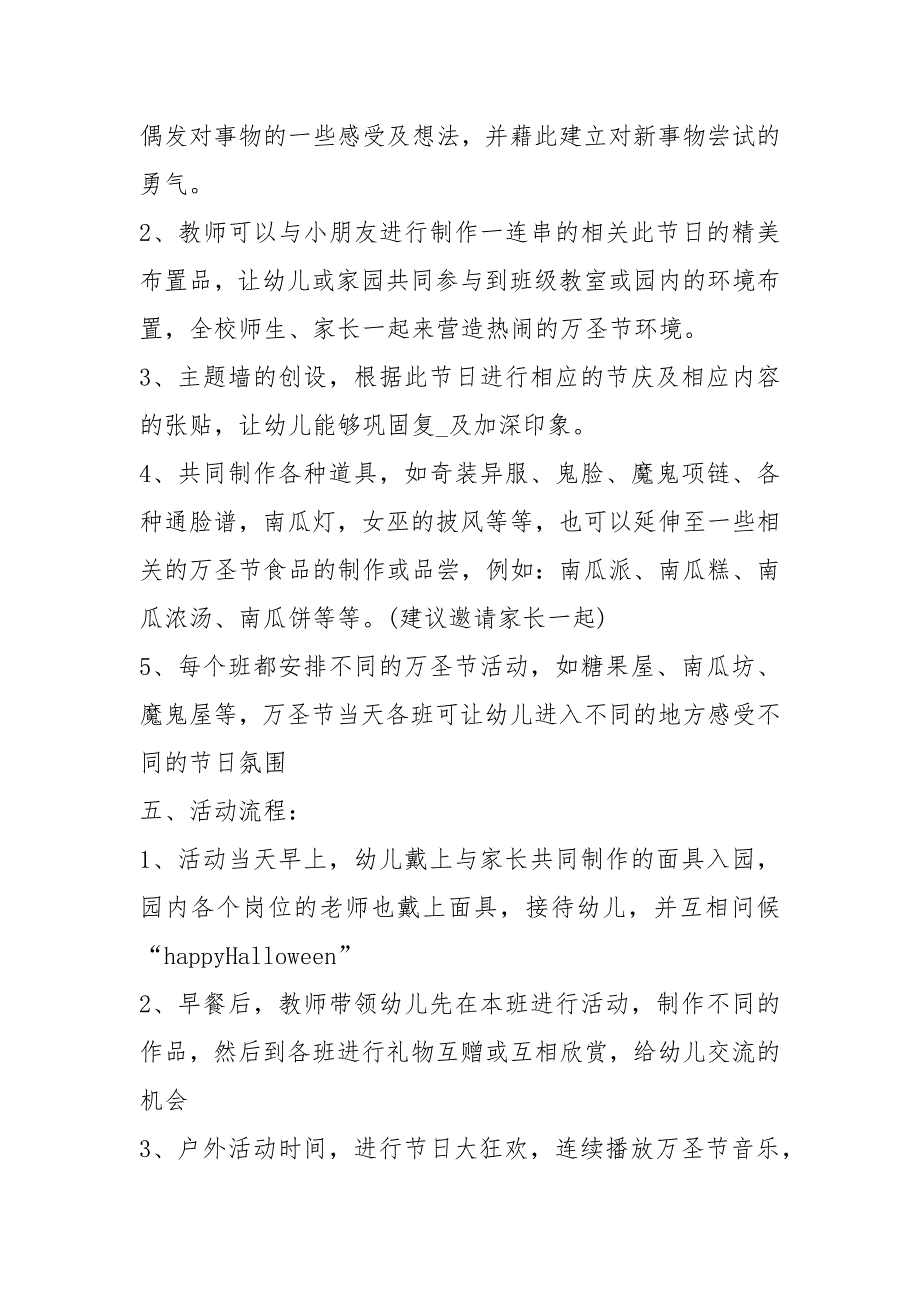 偶发对事物的一些感受及想法，并藉此建立对新事物尝试的
勇气。
2、教师可以与小朋友进行制作一连串的相关此节日的精美
布置品，让幼儿或家园共同参与到班级教室或园内的环境布
置，全校师生、家长一起来营造热闹的万圣节环境。
3、主题墙的创设，根据此节日进行相应的节庆及相应内容
的张贴，让幼儿能够巩固复_及加深印象。
4、共同制作各种道具，如奇装异服、鬼脸、魔鬼项链、各
种通脸谱，南瓜灯，女巫的披风等等，也可以延伸至一些相
关的万圣节食品的制作或品尝，例如：南瓜派、南瓜糕、南
瓜浓汤、南瓜饼等等。(建议邀请家长一起)
5、每个班都安排不同的万圣节活动，如糖果屋、南瓜坊、
魔鬼屋等，万圣节当天各班可让幼儿进入不同的地方感受不
同的节日氛围
五、活动流程：
1、活动当天早上，幼儿戴上与家长共同制作的面具入园，
园内各个岗位的老师也戴上面具，接待幼儿，并互相问候
“happyHalloween”
2、早餐后，教师带领幼儿先在本班进行活动，制作不同的
作品，然后到各班进行礼物互赠或互相欣赏，给幼儿交流的
机会
3、户外活动时间，进行节日大狂欢，连续播放万圣节音乐，